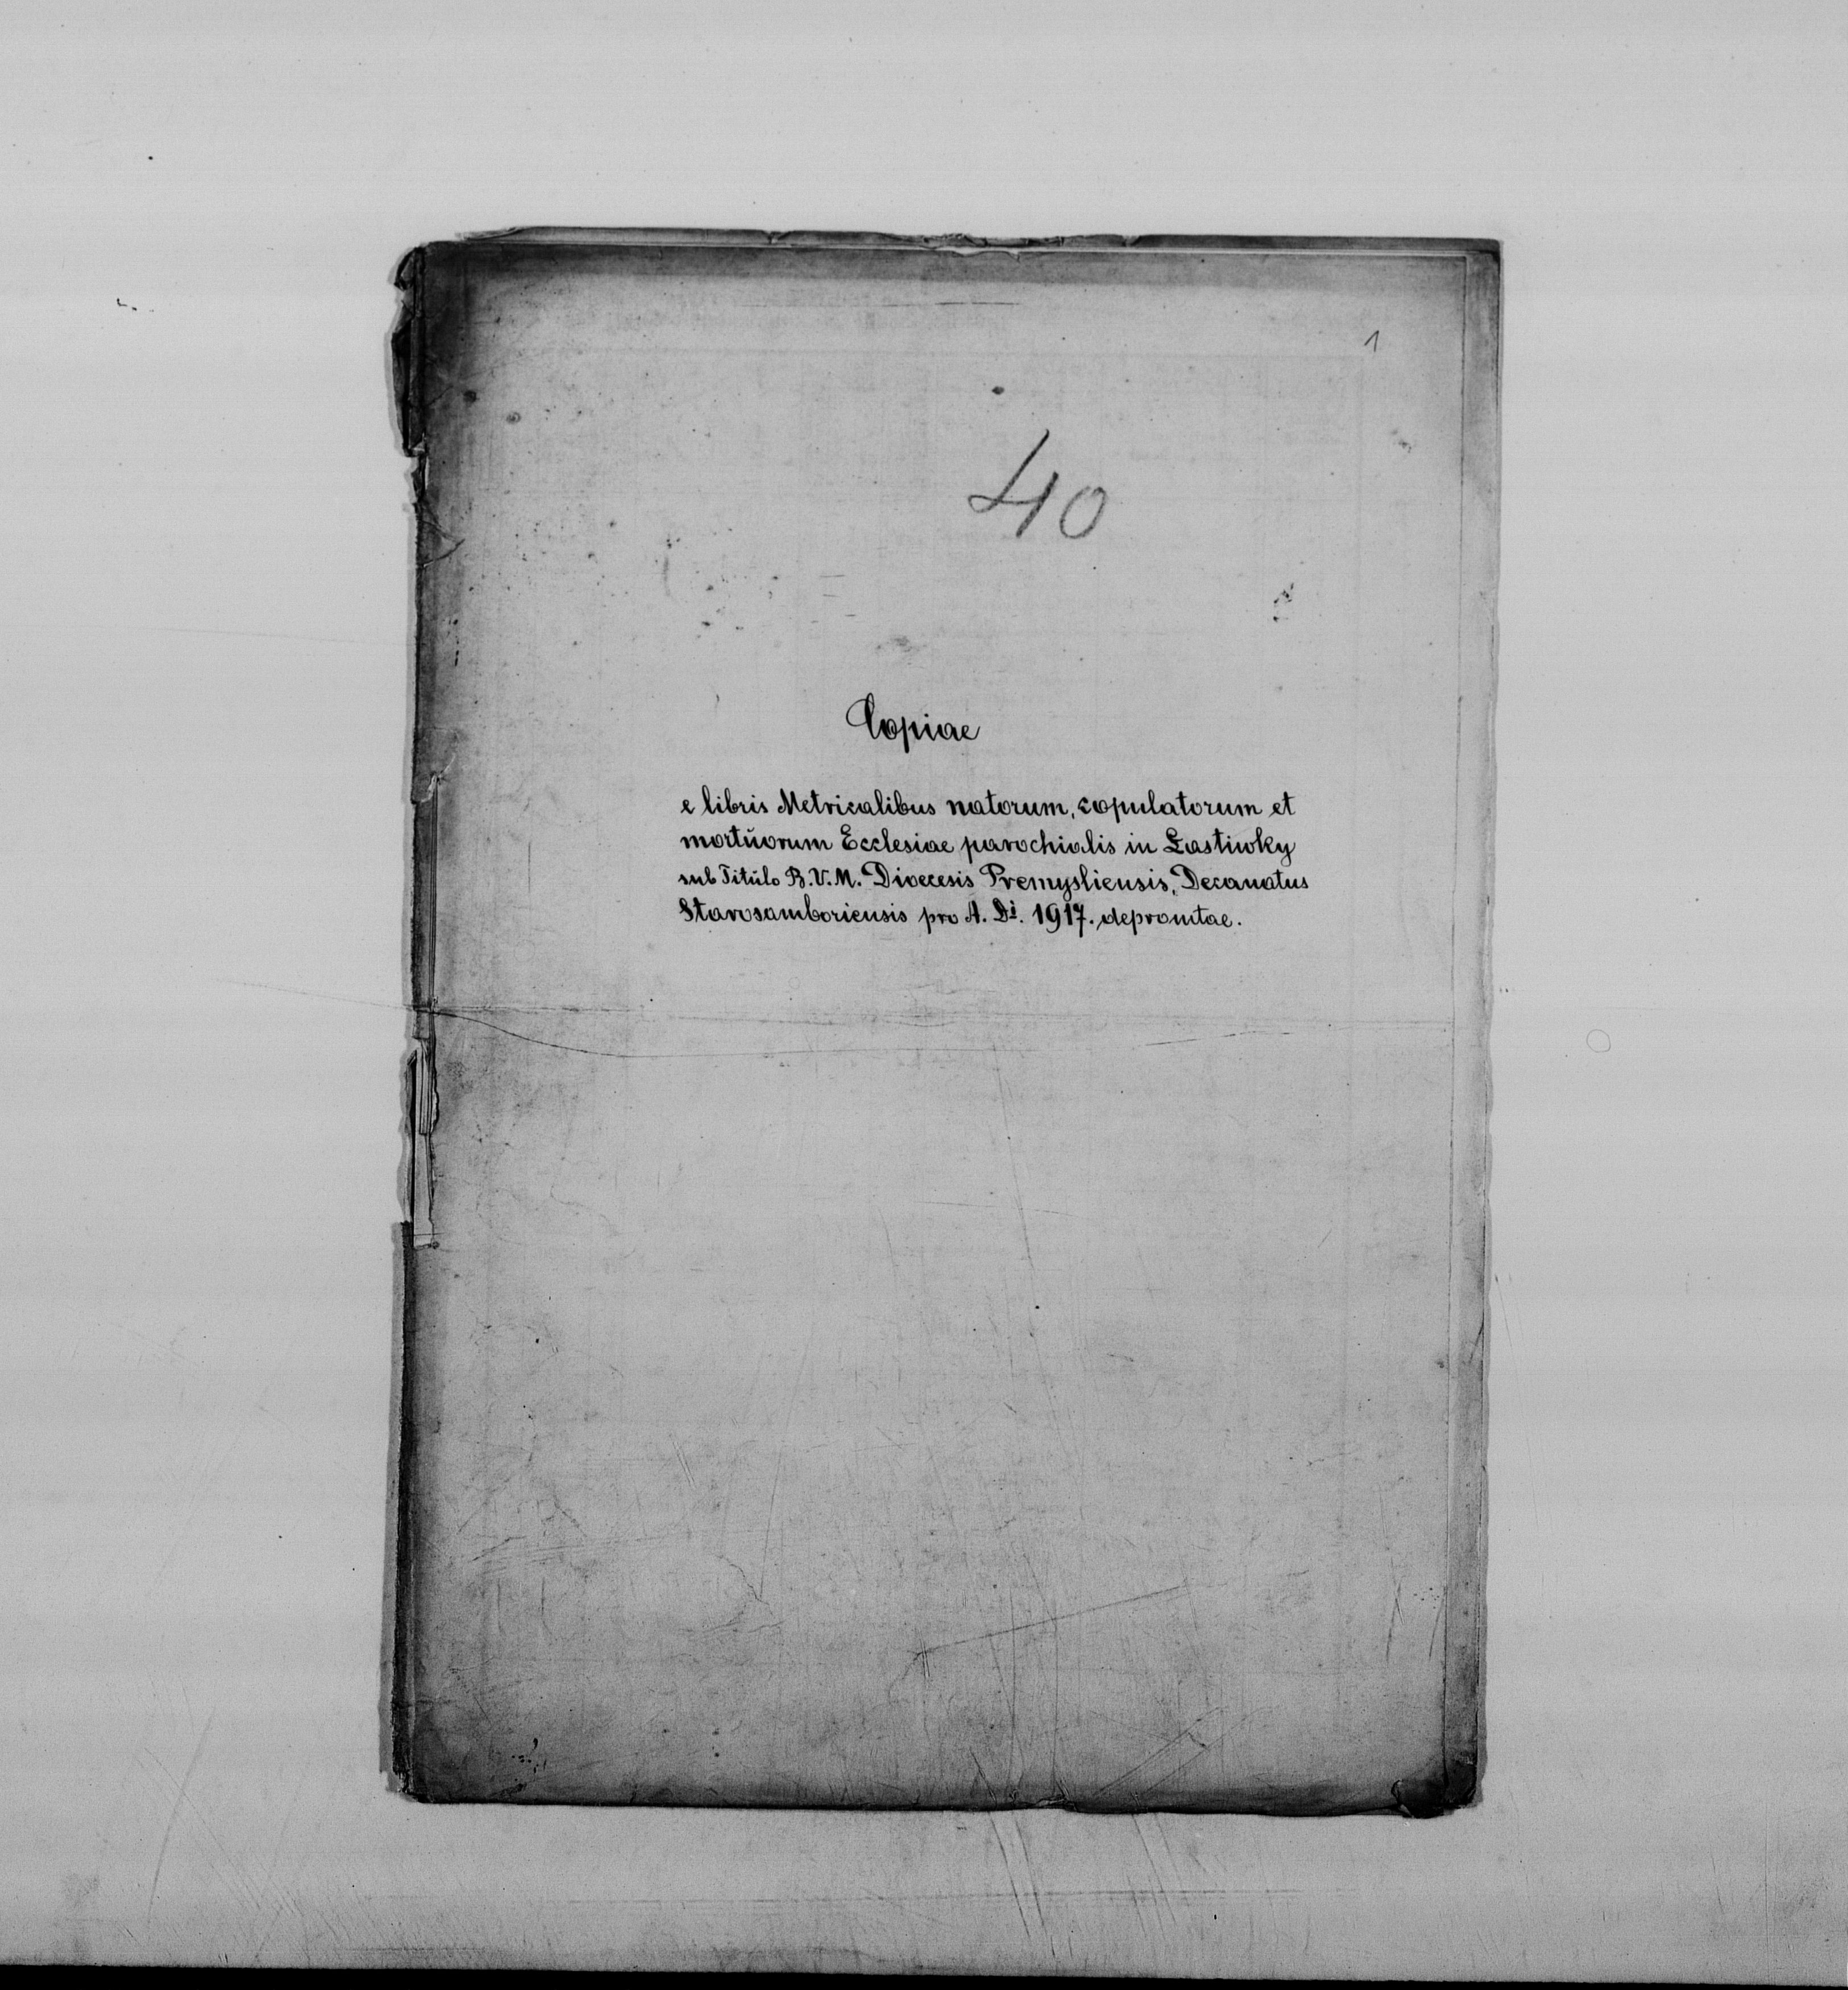 1
40
Copiae
e libris Metricalibus natorum, copulatorum et
mortŭorum Ecclesiae parochialis in Łastiwky
sub Titŭlo B.V.M. Dioecesis Premysliensis, Decanatus
Starosamboriensis pro A. Di. 1917. depromtae.